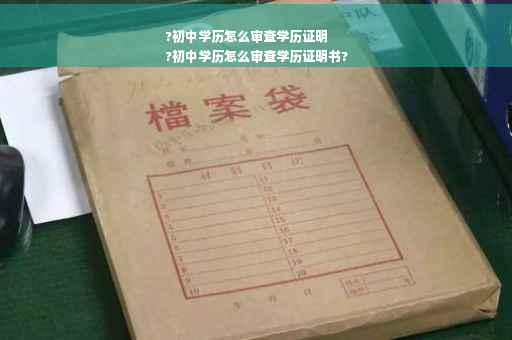 ?初中学历怎么审查学历证明
?初中学历怎么审查学历证明书?
檔案袋
材料目次
1 11
2 12
3 13
4 14
5 15
6 16
7 17
8 18
9 19
10 20
年 月 日